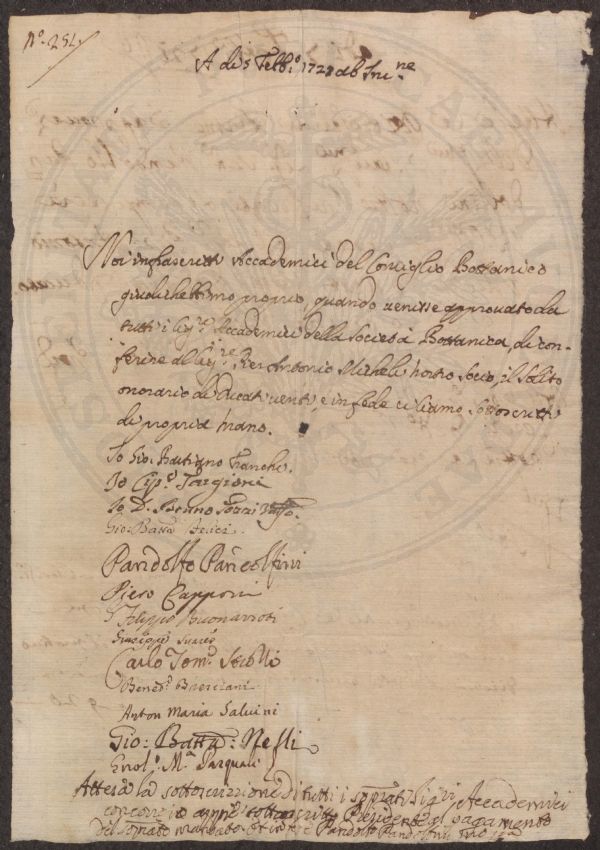 N.º 251
A di 5 Febb.º 1728 ab Inc.ne
Noi infrascritti Accademici del Consiglio Bottanico
giudichettimo proprio, quando venisse approvato da
tutti i Sig.ri Accademici della Società Bottanica, di con-
ferire al Sig.re Pier Antonio Micheli nostro Socio, il solito
onorario di Ducati venti, e in fede ci siamo sottoscritti
di propria mano.
Io Gio. Bastiano Franchi.
Io Cip.º Targioni
Io D. Bruno Tozzi
Gio: Batta Felici
Pandolfo Pandolfini
Piero Capponi
Filippo Buonarroti
Giuseppe Suares
Carlo Tom.º
Bened.º Bresciani
Anton Maria Salvini
Gio: Batta: Nelli
M.ª Pasquali
Attesa la sottoscrizione di tutti i sopra.ti Sig.ri Accademici
concorre io appiè sottoscritto Presidente al pagamento
del sop.rato mandato Pandolfo Pandolfini